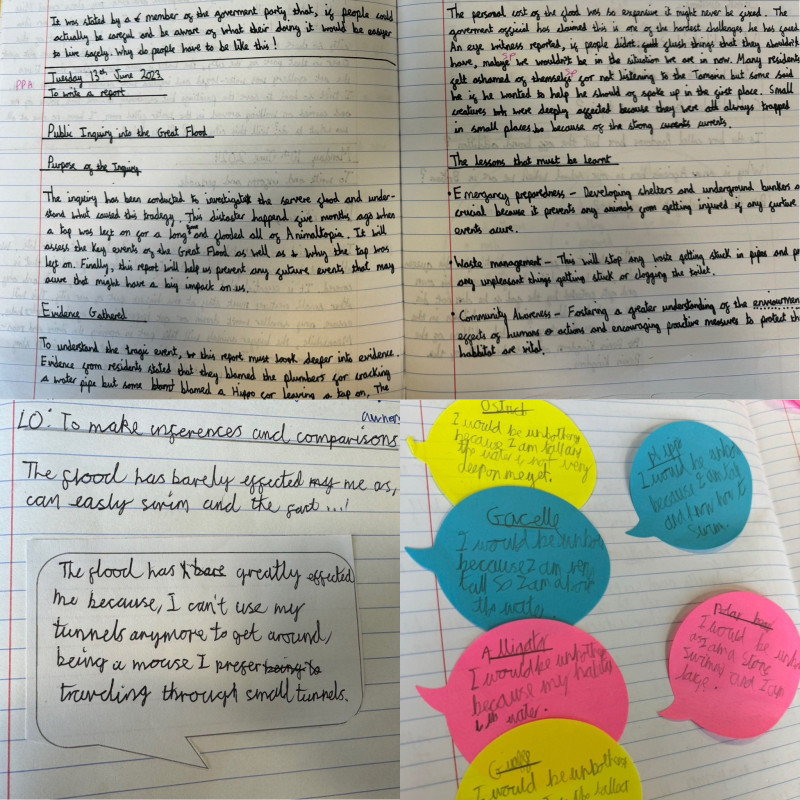 It was stated by a member of the goverment party that, if people could
actually be careful and be aware of what their doing it would be easyer
to live safely. Why do people have to be like this!
PPA
Tuesday 13th June 2023
To write a report
Public Inquiry into the Great Flood
Purpose of the Inquiry
The inquiry has been conducted to investigate the servere flood and under-
stand what caused this tradegy. This distaster happend five months ago when
a tap was left on for a long time and flooded all of Animaltopia. It will
assess the key events of the Great Flood as well as Why the tap was
left on. Finally, this report will help us prevent any future events that may
acure that might have a big impact on us.
Evidence Gathered
To understand the tragic event, this report must look deeper into evidence.
Evidence from residents stated that they blamed the plumbers for cracking
a water pipe but some blamed a Hippo for leaving a tap on. The
The personal cost of the flood was so expensive it might never be fixed. The
government official has claimed this is one of the hardest challenges he has faced.
An eye witness reported, if people didnt flush things that they shouldn't
have, maby we wouldn't be in the situation we are in now. Many residents
felt ashamed of themselfs for not listening to the Tamarin but some said
he if he wanted to help he should of spoke up in the first place. Small
creatures were deeply affected because they were all always trapped
in small places because of the strong currents.
The lessons that must be learnt
• Emergancy preparedness – Developing shelters and underground bunkers a
crucial because it prevents any animals from getting injured if any furture
events acure.
• Waste management – This will stop any waste getting stuck in pipes and
any unpleasent things getting stuck or clogging the toilet.
• Community Awarness – Fostering a greater understanding of the
effects of humans actions and encouraging proactive measures to protect
habbitat are vital.
LO: To make inferences and comparisons
The flood has barely effected me as,
can easly swim and the fact...!
The flood has greatly effected
me because, I can't use my
tunnels anymore to get around,
being a mouse I prefer
traveling through small tunnels.
I would be unbothered
because I am tall
the water is not very
deep on me yet.
Hippo
I would be
because I am
and know how to
swim.
Gacelle
I would be
because I am very
tall so I am above
the water.
Alligator
I would be unbothered
because my habitat
is water.
Polar bear
I would be
as I am a
and I am
large.
I would be unbothered
the tallest